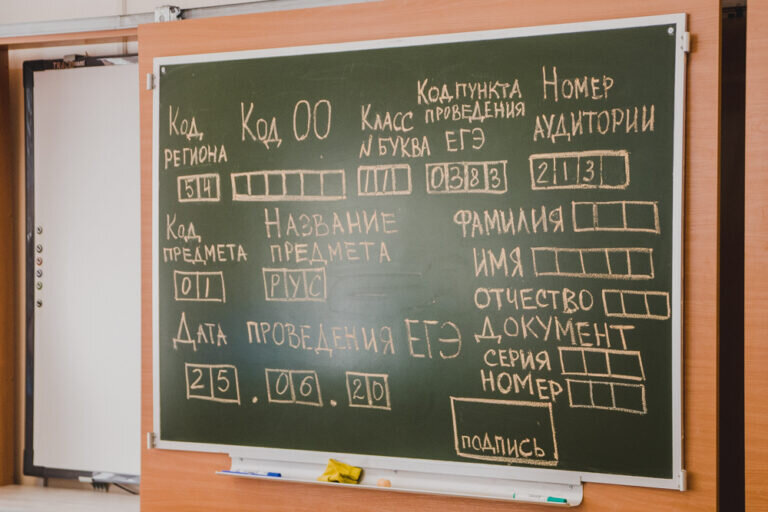 Код ОО
Код пункта
Номер
Код
региона
Класс
проведения
аудитории
№ буква
ЕГЭ
54
0383
213
Код
предмета
Название
предмета
Фамилия
Имя
01
РУС
Отчество
Дата проведения ЕГЭ
Документ
серия
номер
25.06.20
подпись